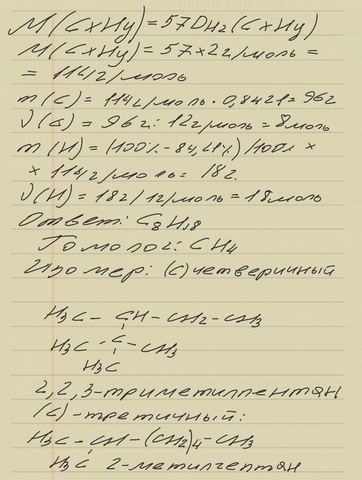 M(CxHy)=57DH2(CxHy)
M(CxHy)=57×2г/моль=
=114г/моль
m(C)=114г/моль·0,8421=96г
ν(C)=96г:12г/моль=8моль
m(H)=(100%-84,21%)/100% ×
×114г/моль=18г.
ν(H)=18г/1г/моль=18моль
Ответ: C8H18
Гомолог: CH4
Изомер: (C) четверичный
H3C - CH - CH2 - CH3
H3C - C - CH3
H3C
2,2,3-триметилпентан
(C)-третичный:
H3C - CH - (CH2)4 - CH3
H3C 2-метилгептан